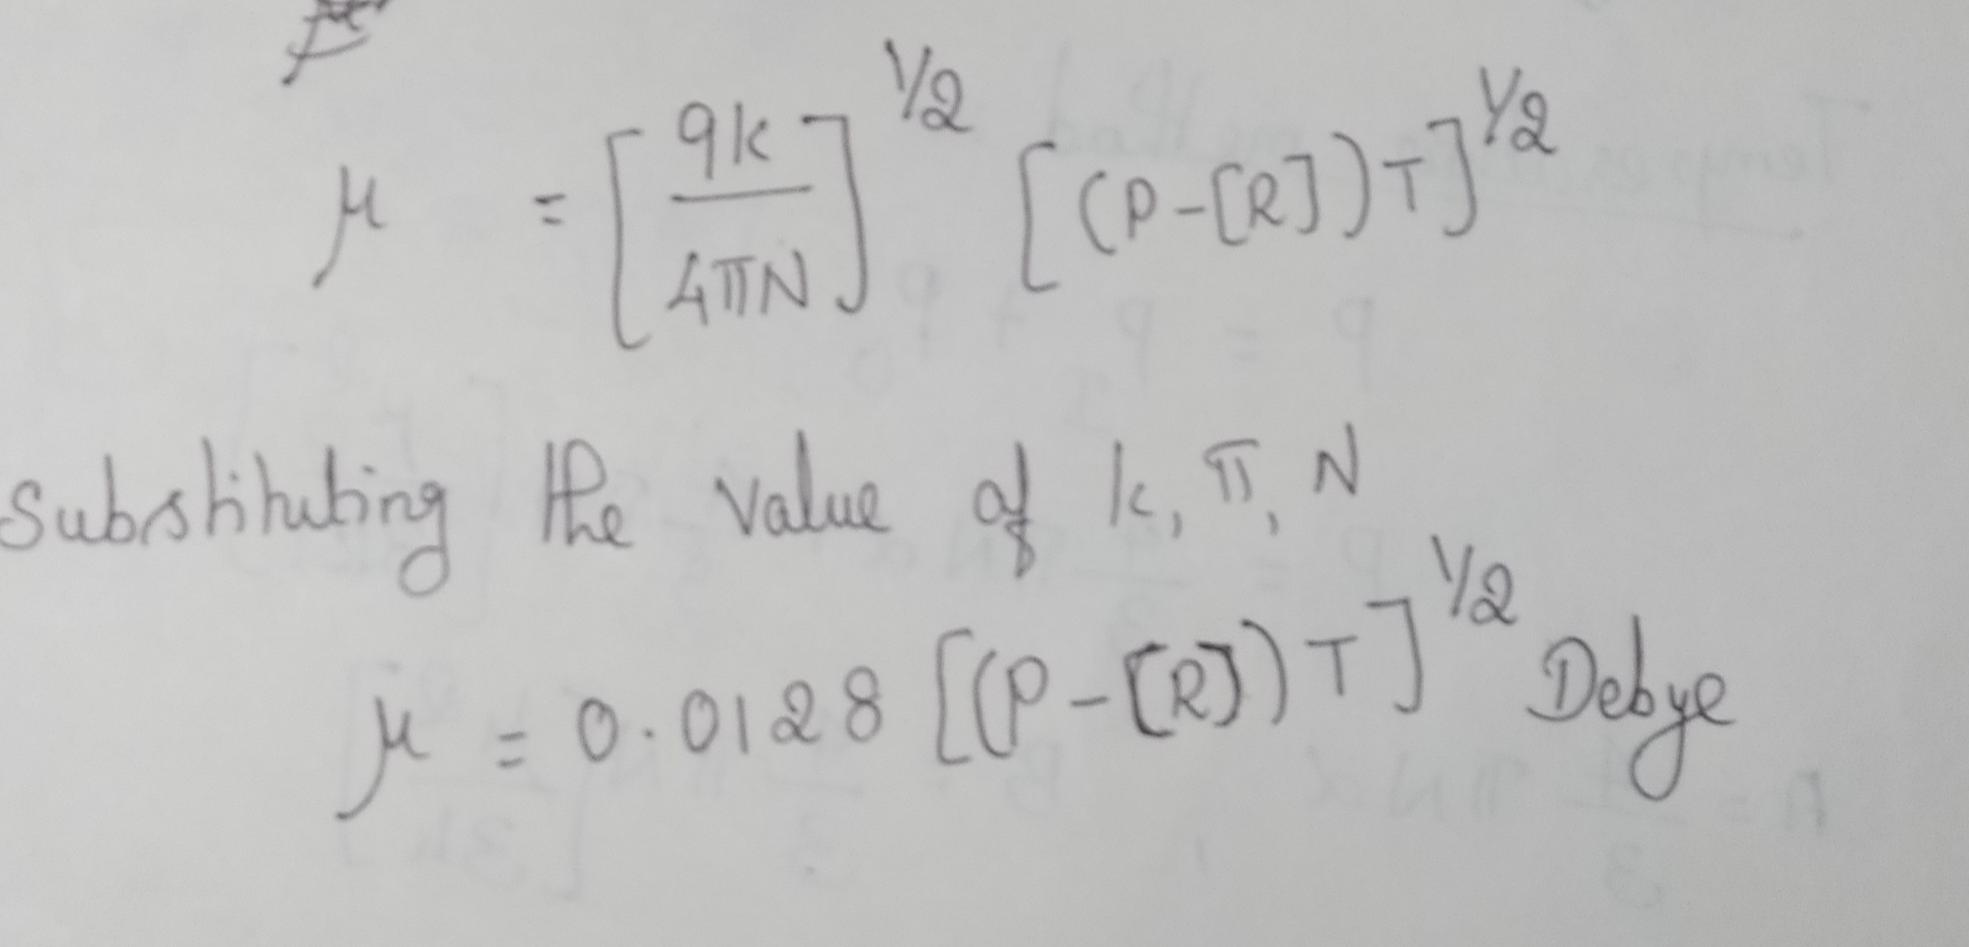 μ = [9k / 4πN]^1/2 [(P-[R])T]^1/2
Substituting the value of k, π, N
μ = 0.0128 [(P-[R])T]^1/2 Debye